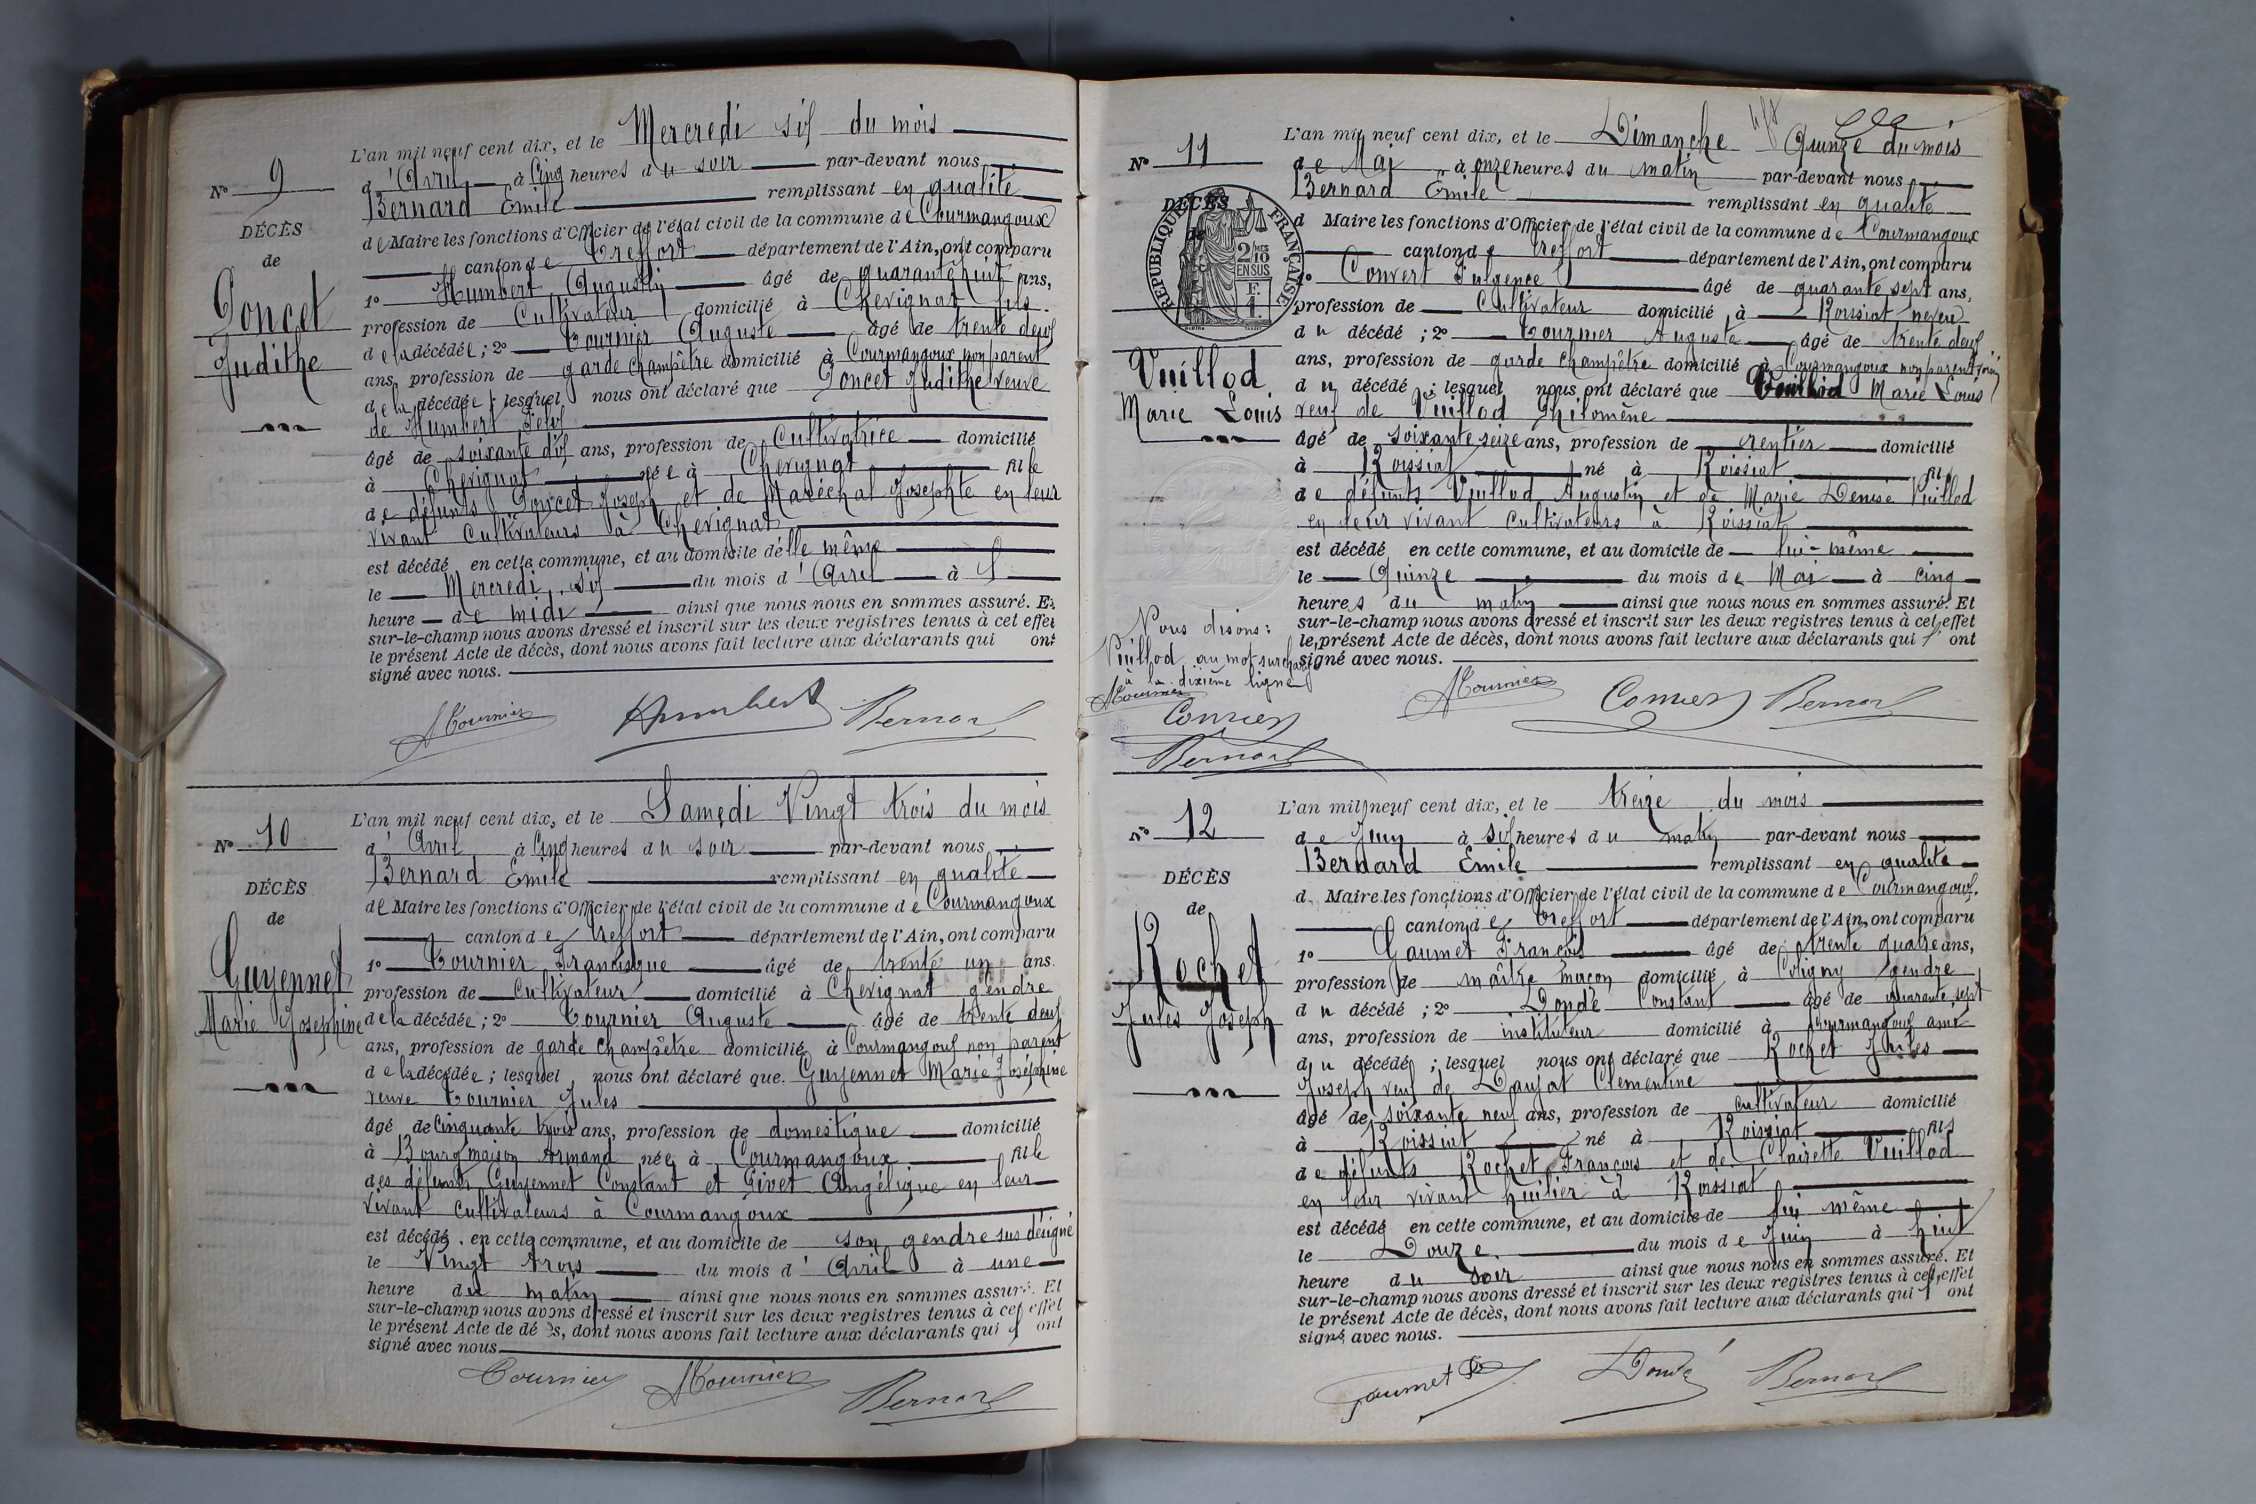 L'an mil neuf cent dix, et le Mercredi six du mois
N° 9
d'Avril à Cinq heures du soir par-devant nous
Bernard Emile remplissant en qualité
DÉCÈS
de Maire les fonctions d'Officier de l'état civil de la commune de Courmangoux
de
canton de Treffort département de l'Ain, ont comparu
1° Humbert Augustin âgé de quarante huit ans,
Poncet
profession de Cultivateur domicilié à Chevignat fils
Judithe
de la décédée; 2° Tournier Auguste âgé de trente deux
ans, profession de garde champêtre domicilié à Courmangoux non parent
de la décédée; lesquels nous ont déclaré que Poncet Judithe veuve
de Humbert Félix
âgé de soixante dix ans, profession de Cultivatrice domicilié
à Chevignat née à Chevignat fille
de défunts Poncet Joseph et de Maréchal Josephte en leur
vivant Cultivateurs à Chevignat
est décédé en cette commune, et au domicile d'elle même
le Mercredi six du mois d'Avril à l'
heure de midi ainsi que nous nous en sommes assuré. Et
sur-le-champ nous avons dressé et inscrit sur les deux registres tenus à cet effet
le présent Acte de décès, dont nous avons fait lecture aux déclarants qui ont
signé avec nous.
ATournier Humbert Bernard
L'an mil neuf cent dix, et le Samedi Vingt trois du mois
N° 10
d'Avril à Cinq heures du soir par-devant nous
Bernard Emile remplissant en qualité
DÉCÈS
de Maire les fonctions d'Officier de l'état civil de la commune de Courmangoux
de
canton de Treffort département de l'Ain, ont comparu
1° Tournier Francisque âgé de trente un ans.
Guyennet
profession de Cultivateur domicilié à Chevignat gendre
Marie Josephine
de la décédée; 2° Tournier Auguste âgé de trente deux
ans, profession de garde champêtre domicilié à Courmangoux non parent
de la décédée; lesquels nous ont déclaré que Guyennet Marie Joséphine
veuve Tournier Jules
âgé de cinquante trois ans, profession de domestique domicilié
à Bourg maison Armand née à Courmangoux fille
des défunts Guyennet Constant et Givet Angélique en leur
vivant cultivateurs à Courmangoux
est décédé en cette commune, et au domicile de son gendre sus désigné
le Vingt trois du mois d'Avril à une
heure du matin ainsi que nous nous en sommes assuré. Et
sur-le-champ nous avons dressé et inscrit sur les deux registres tenus à cet effet
le présent Acte de décès, dont nous avons fait lecture aux déclarants qui ont
signé avec nous.
Tournier ATournier Bernard
L'an mil neuf cent dix, et le Dimanche Quinze du mois
N° 11
de Mai à onze heures du matin par-devant nous
Bernard Emile remplissant en qualité
DÉCÈS
de
RÉPUBLIQUE FRANÇAISE
2/10 EN SUS
d Maire les fonctions d'Officier de l'état civil de la commune de Courmangoux
canton de Treffort département de l'Ain, ont comparu
1° Convert Fulgence âgé de quarante sept ans,
profession de Cultivateur domicilié à Roissiat neveu
du décédé; 2° Tournier Auguste âgé de trente deux
ans, profession de garde champêtre domicilié à Courmangoux non parent
Vuillod
du décédé; lesquels nous ont déclaré que Vuillod Marie Louis
Marie Louis
veuf de Vuillod Philomène
âgé de soixante seize ans, profession de rentier domicilié
à Roissiat né à Roissiat fils
de défunts Vuillod Augustin et de Marie Denise Vuillod
en leur vivant cultivateurs à Roissiat
est décédé en cette commune, et au domicile de lui-même
le Quinze du mois de Mai à cinq
heures du matin ainsi que nous nous en sommes assuré. Et
sur-le-champ nous avons dressé et inscrit sur les deux registres tenus à cet effet
le présent Acte de décès, dont nous avons fait lecture aux déclarants qui ont
signé avec nous.
Nous disons:
Vuillod au mot surchargé
à la dixième ligne
ATournier
Convert
Bernard
ATournier Convert Bernard
L'an mil neuf cent dix, et le treize du mois
N° 12
de Juin à six heures du matin par-devant nous
Bernard Emile remplissant en qualité
DÉCÈS
d Maire les fonctions d'Officier de l'état civil de la commune de Courmangoux.
de
canton de Treffort département de l'Ain, ont comparu
1° Gaumet François âgé de trente quatre ans,
Rochet
profession de maître maçon domicilié à Coligny gendre
Jules Joseph
du décédé; 2° Dondé Constant âgé de quarante sept
ans, profession de instituteur domicilié à Courmangoux ami
du décédé; lesquels nous ont déclaré que Rochet Jules
Joseph veuf de Daujat Clémentine
âgé de soixante neuf ans, profession de cultivateur domicilié
à Roissiat né à Roissiat fils
de défunts Rochet François et de Clairette Vuillod
en leur vivant huilier à Roissiat
est décédé en cette commune, et au domicile de lui même
le Douze du mois de Juin à huit
heure du soir ainsi que nous nous en sommes assuré. Et
sur-le-champ nous avons dressé et inscrit sur les deux registres tenus à cet effet
le présent Acte de décès, dont nous avons fait lecture aux déclarants qui ont
signé avec nous.
Gaumet Dondé Bernard